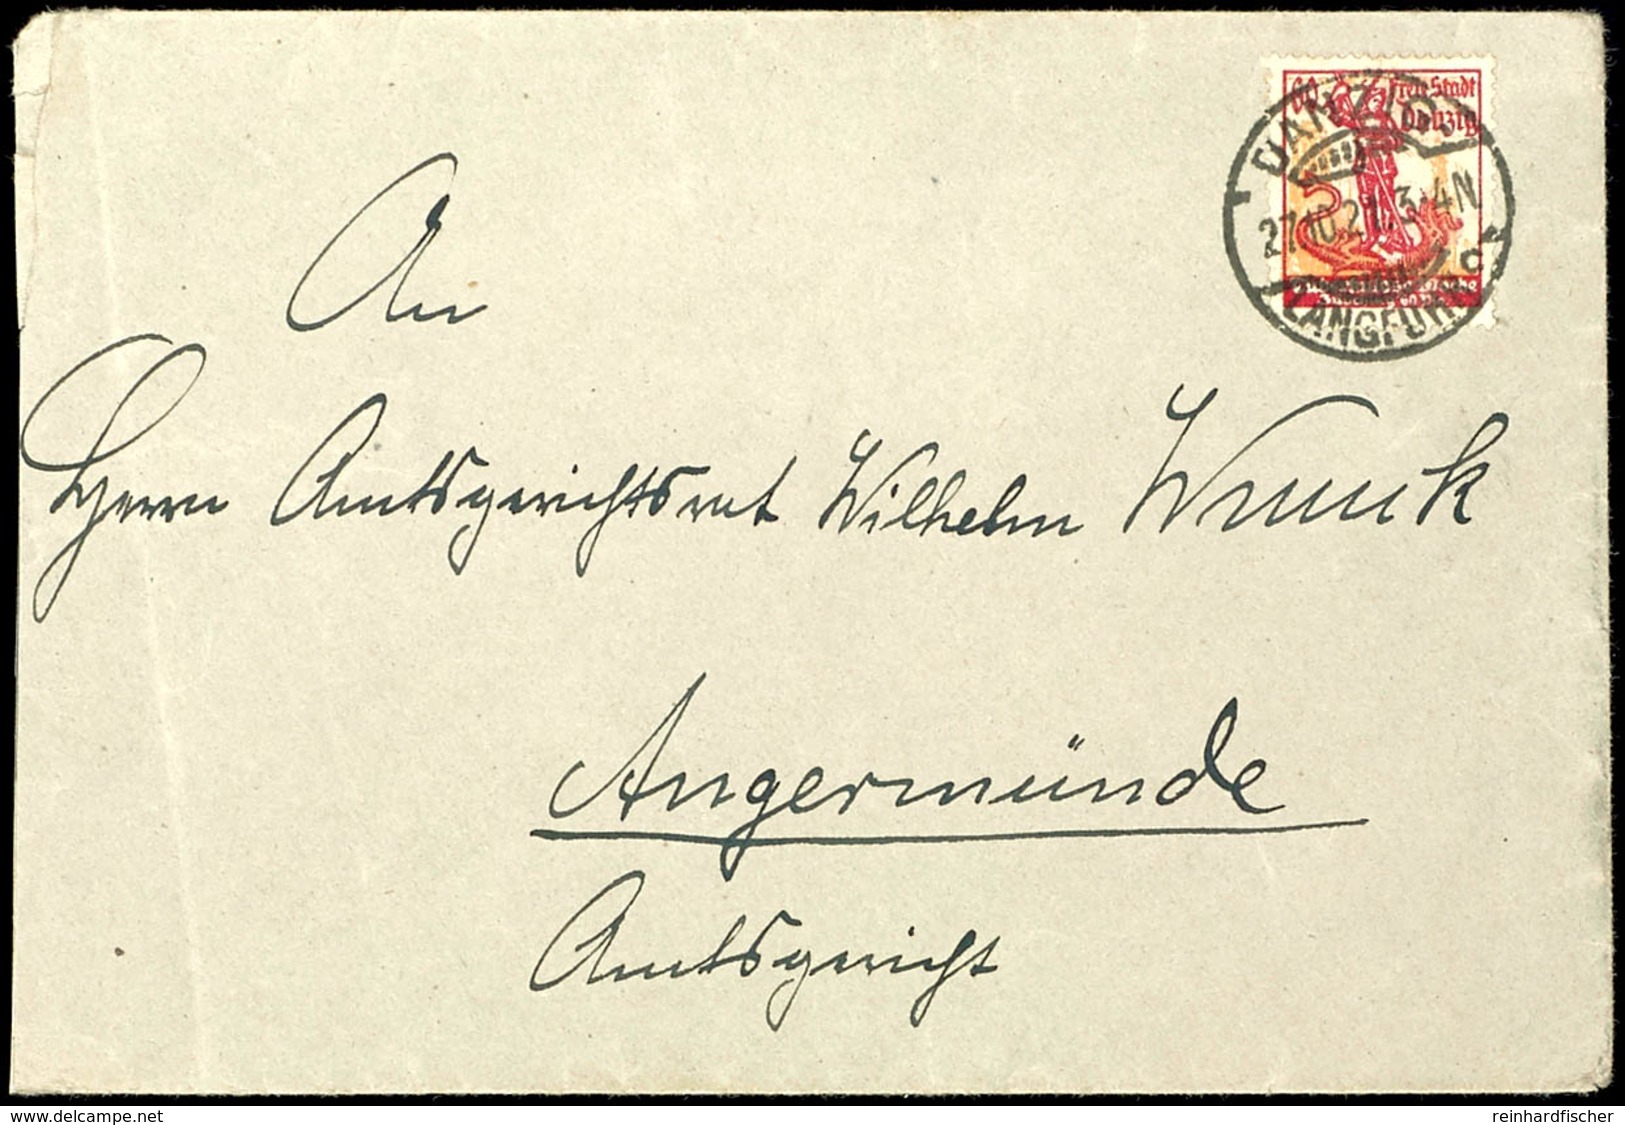 60 Freie Stadt
Danzig
DANZIG
27.10.21. 3-4N
LANGFUHR
An
Herrn Amtsgerichtsrat Wilhelm
Angermünde
Amtsgericht
www.delcampe.net
reinhardfischer